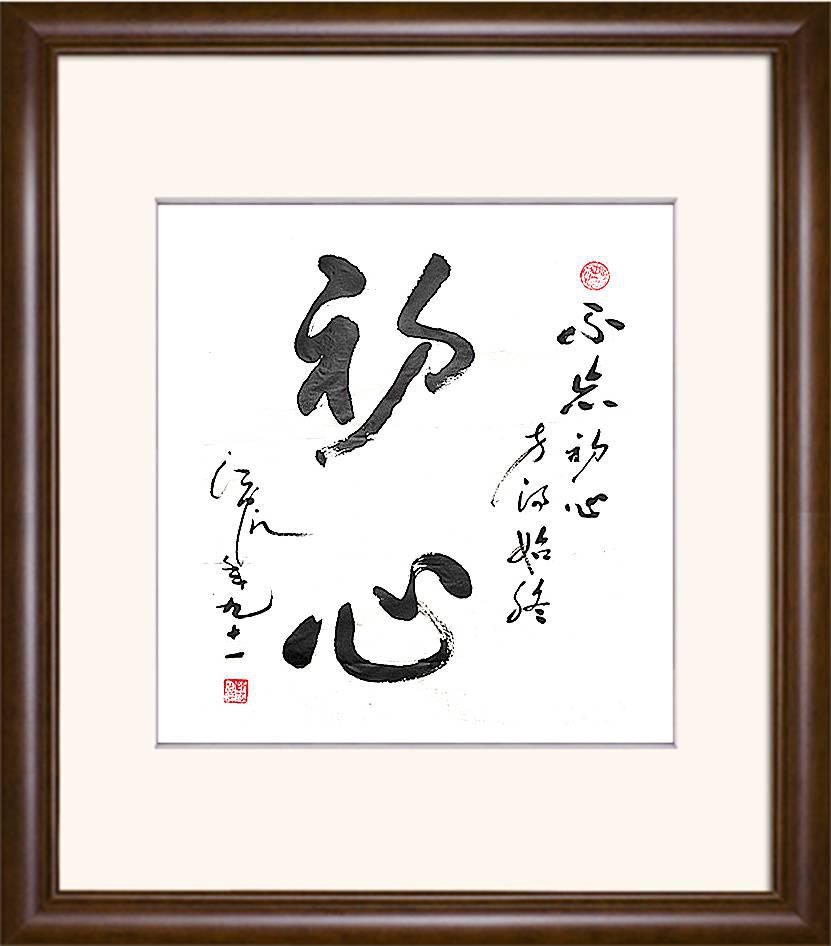 不忘初心
方得始终
初心
年九十一